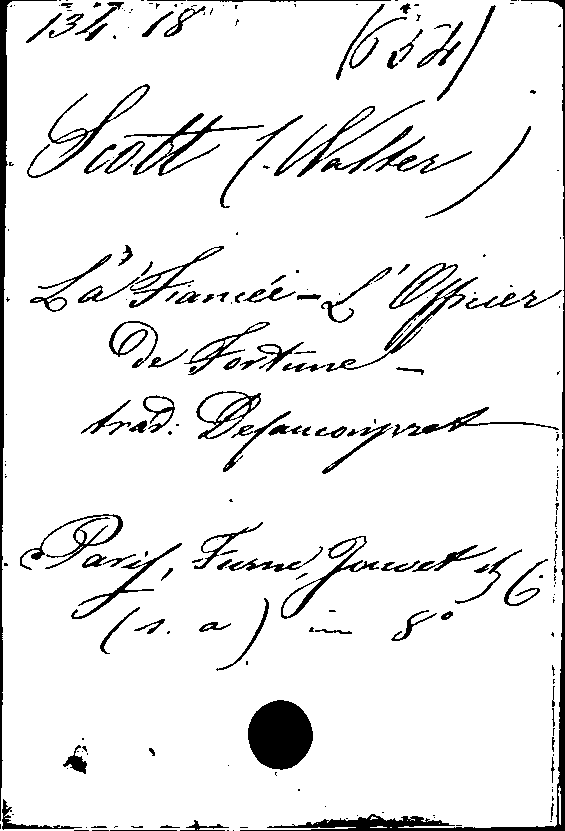 134. 18 (654)
Scott (Walter)
La Fiancée - L'Officier
de Fortune -
trad. Defauconpret
Paris, Furne, Jouvet et C.
(s. a) in 8°